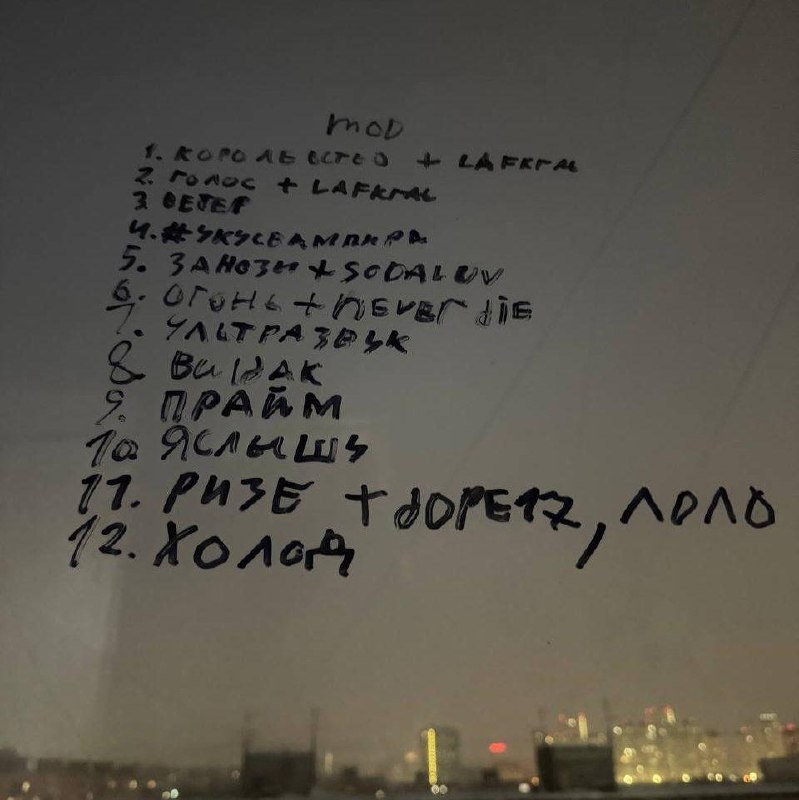 mOD
1. КОРОЛЕВСТВО + LAFKRAL
2. ГОЛОС + LAFKRAL
3 ВЕТЕР
4. #УКУСВАМПИРА
5. ЗАНОЗЫ + SODALUV
6. ОГОНЬ + NEVER diE
7. УЛЬТРАЗВУК
8 ВЫ1dАК
9. ПРАЙМ
10 ЯСЛЫШУ
11. РИЗЕ + dOPE17, ЛОЛО
12. ХОЛОД